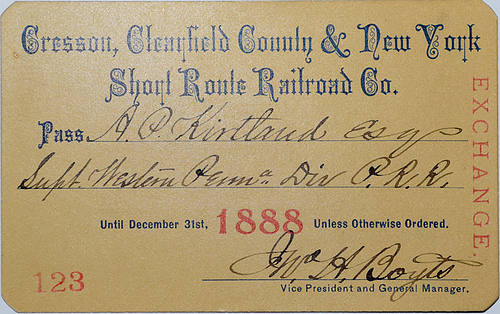 Cresson, Clearfield County & New York
Short Route Railroad Co.
Pass A. P. Kirtland Esq
Supt. Western Penna Div P. R. R.
Until December 31st, 1888 Unless Otherwise Ordered.
H. Boyts
Vice President and General Manager.
123
EXCHANGE.